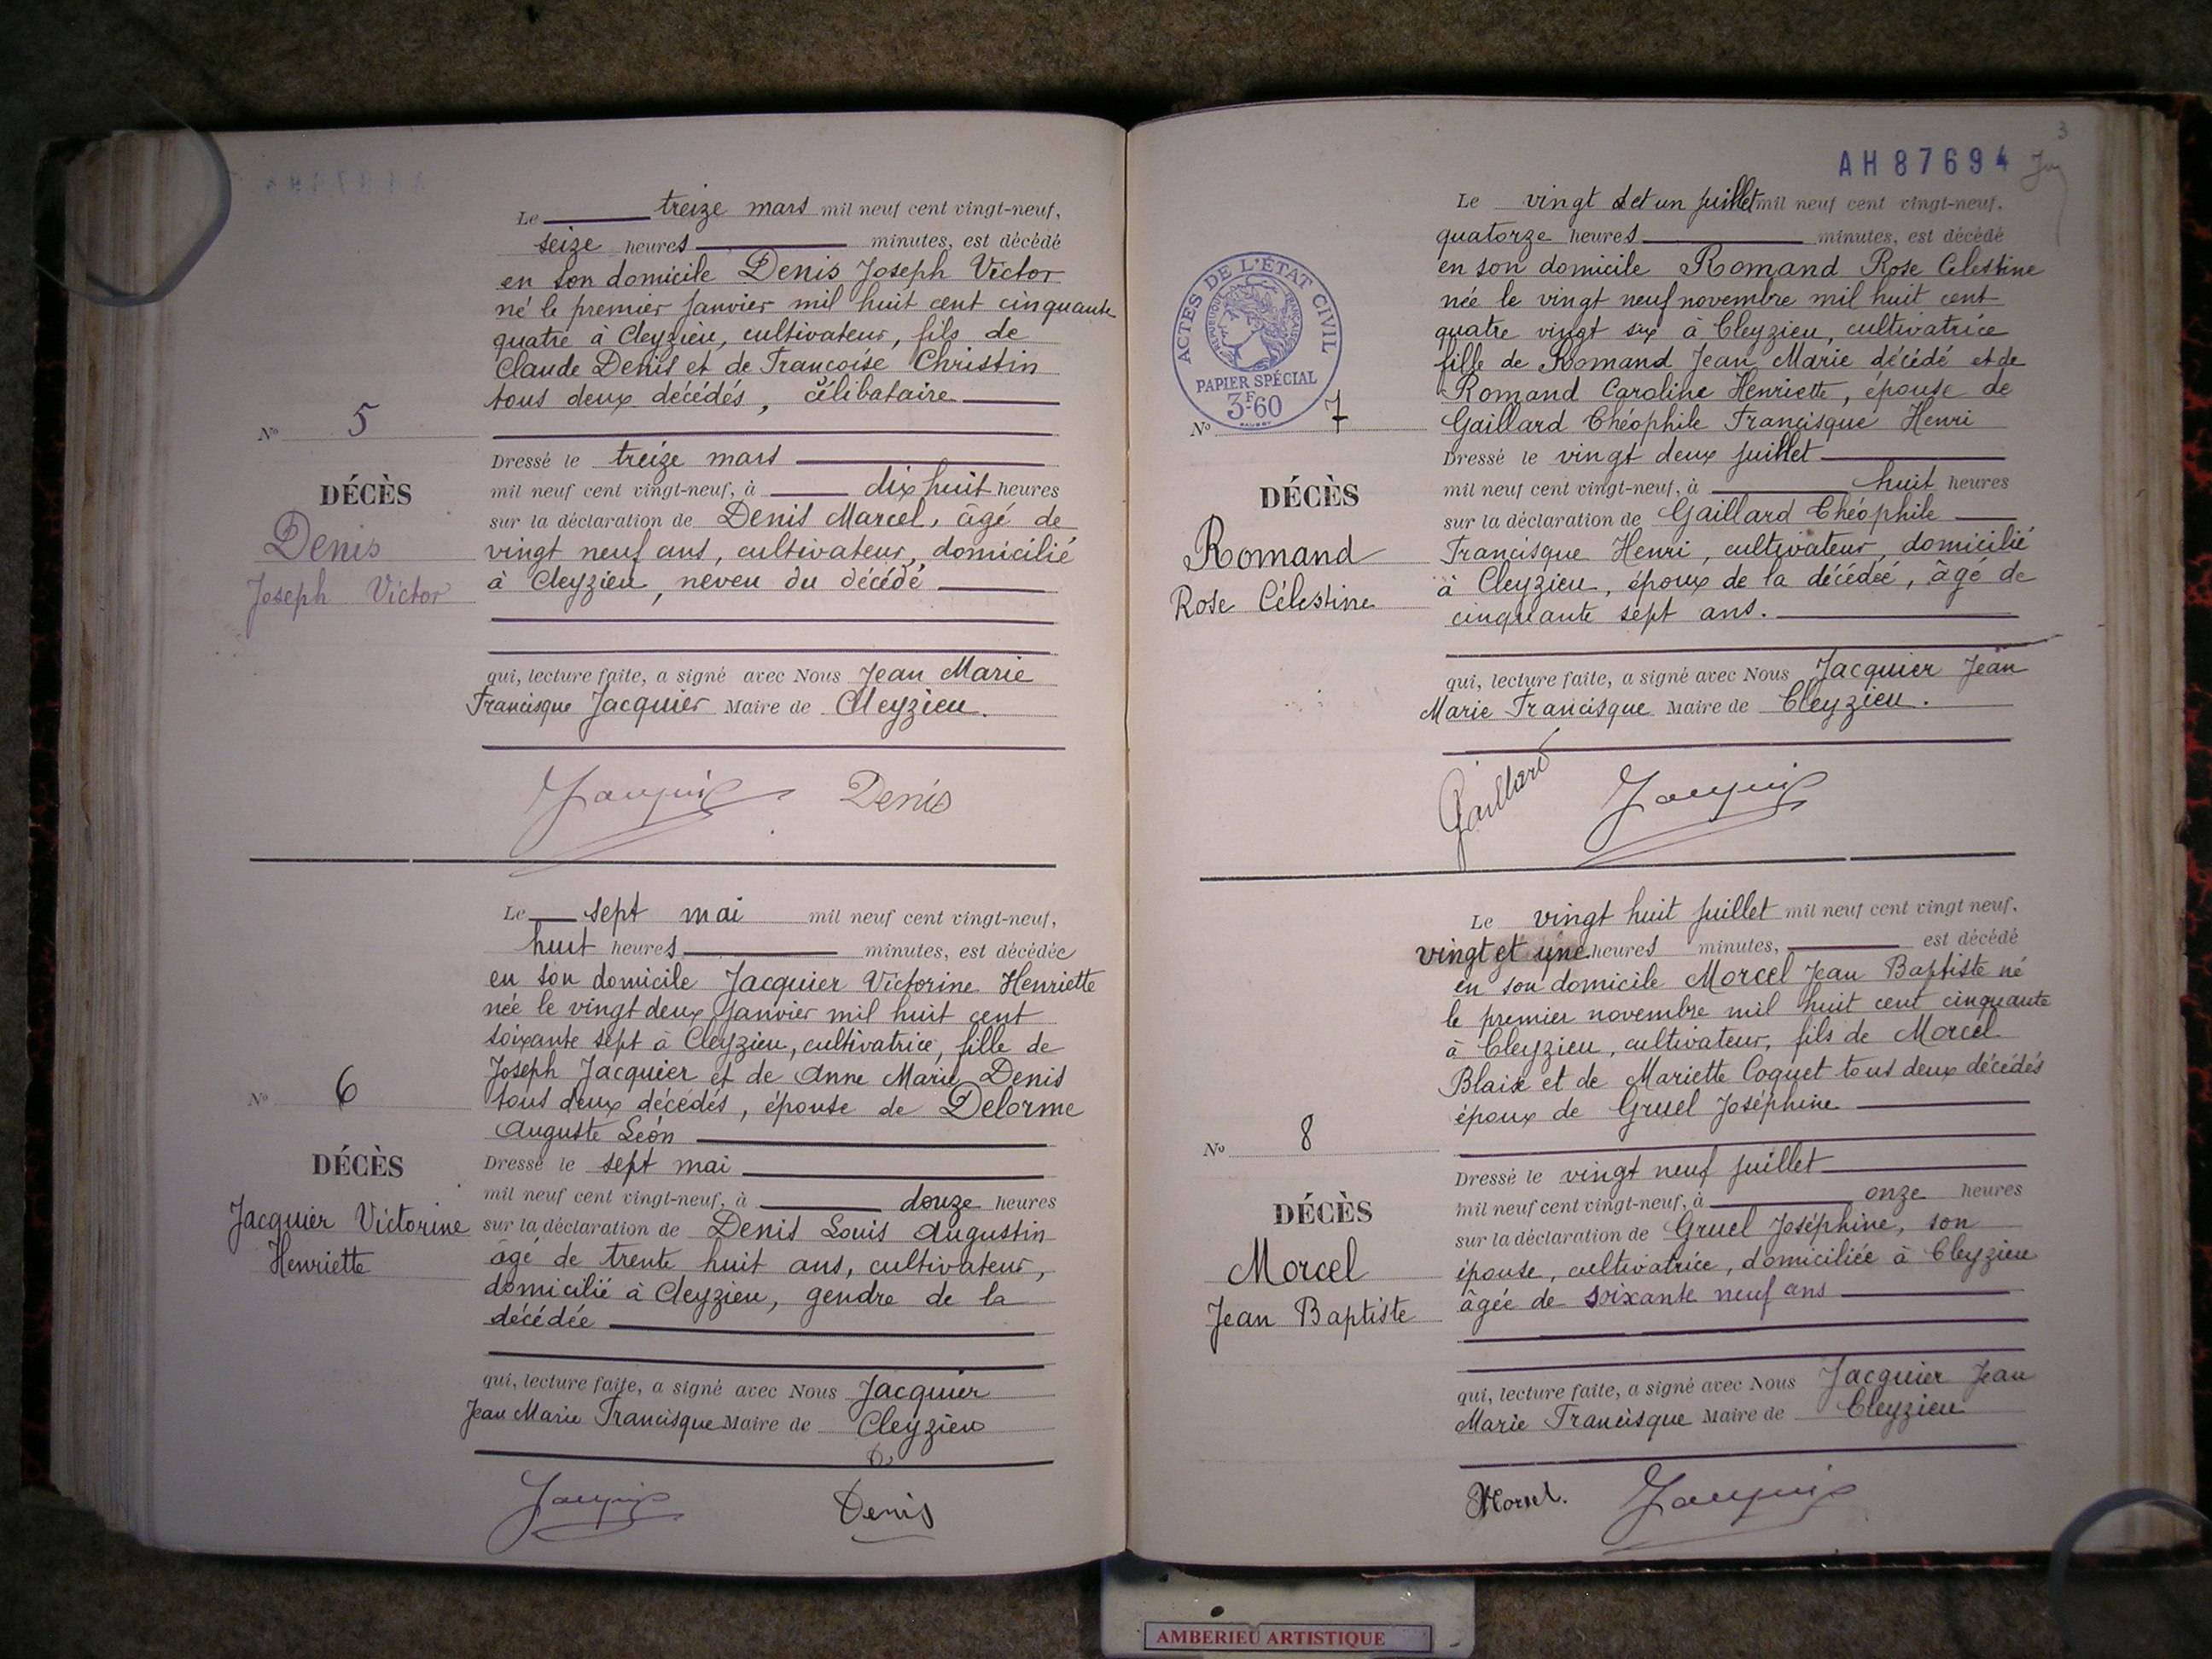 Le treize mars mil neuf cent vingt-neuf,
seize heures minutes, est décédé
en son domicile Denis Joseph Victor
né le premier janvier mil huit cent cinquante
quatre à Cleyzieu, cultivateur, fils de
Claude Denis et de Françoise Christin
tous deux décédés, célibataire
N° 5
Dressé le treize mars
DÉCÈS
mil neuf cent vingt-neuf, à dix huit heures
Denis
Joseph Victor
sur la déclaration de Denis Marcel, âgé de
vingt neuf ans, cultivateur, domicilié
à Cleyzieu, neveu du décédé
qui, lecture faite, a signé avec Nous Jean Marie
Francisque Jacquier Maire de Cleyzieu.
Jacquier Denis
Le sept mai mil neuf cent vingt-neuf,
huit heures minutes, est décédée
en son domicile Jacquier Victorine Henriette
née le vingt deux janvier mil huit cent
soixante sept à Cleyzieu, cultivatrice, fille de
Joseph Jacquier et de Anne Marie Denis
tous deux décédés, épouse de Delorme
Auguste Léon
N° 6
DÉCÈS
Jacquier Victorine
Henriette
Dressé le sept mai
mil neuf cent vingt-neuf, à douze heures
sur la déclaration de Denis Louis Augustin
âgé de trente huit ans, cultivateur,
domicilié à Cleyzieu, gendre de la
décédée
qui, lecture faite, a signé avec Nous Jacquier
Jean Marie Francisque Maire de Cleyzieu
Jacquier Denis
3
AH87694
Le vingt et un juillet mil neuf cent vingt-neuf,
quatorze heures minutes, est décédé
en son domicile Romand Rose Celestine
née le vingt neuf novembre mil huit cent
quatre vingt six à Cleyzieu, cultivatrice
fille de Romand Jean Marie décédé et de
Romand Caroline Henriette, épouse de
Gaillard Théophile Francisque Henri
ACTES DE L'ÉTAT CIVIL
RÉPUBLIQUE FRANÇAISE
PAPIER SPÉCIAL
3F60
N° 7
DÉCÈS
Romand
Rose Célestine
Dressé le vingt deux juillet
mil neuf cent vingt-neuf, à huit heures
sur la déclaration de Gaillard Théophile
Francisque Henri, cultivateur, domicilié
à Cleyzieu, époux de la décédée, âgé de
cinquante sept ans.
qui, lecture faite, a signé avec Nous Jacquier Jean
Marie Francisque Maire de Cleyzieu.
Gaillard Jacquier
Le vingt huit juillet mil neuf cent vingt neuf,
vingt et une heures minutes, est décédé
en son domicile Morcel Jean Baptiste né
le premier novembre mil huit cent cinquante
à Cleyzieu, cultivateur, fils de Morcel
Blaise et de Mariette Coquet tous deux décédés
époux de Gruel Joséphine
N° 8
DÉCÈS
Morcel
Jean Baptiste
Dressé le vingt neuf juillet
mil neuf cent vingt-neuf, à onze heures
sur la déclaration de Gruel Joséphine, son
épouse, cultivatrice, domiciliée à Cleyzieu
âgée de soixante neuf ans
qui, lecture faite, a signé avec Nous Jacquier Jean
Marie Francisque Maire de Cleyzieu
Morcel. Jacquier
AMBERIEU ARTISTIQUE